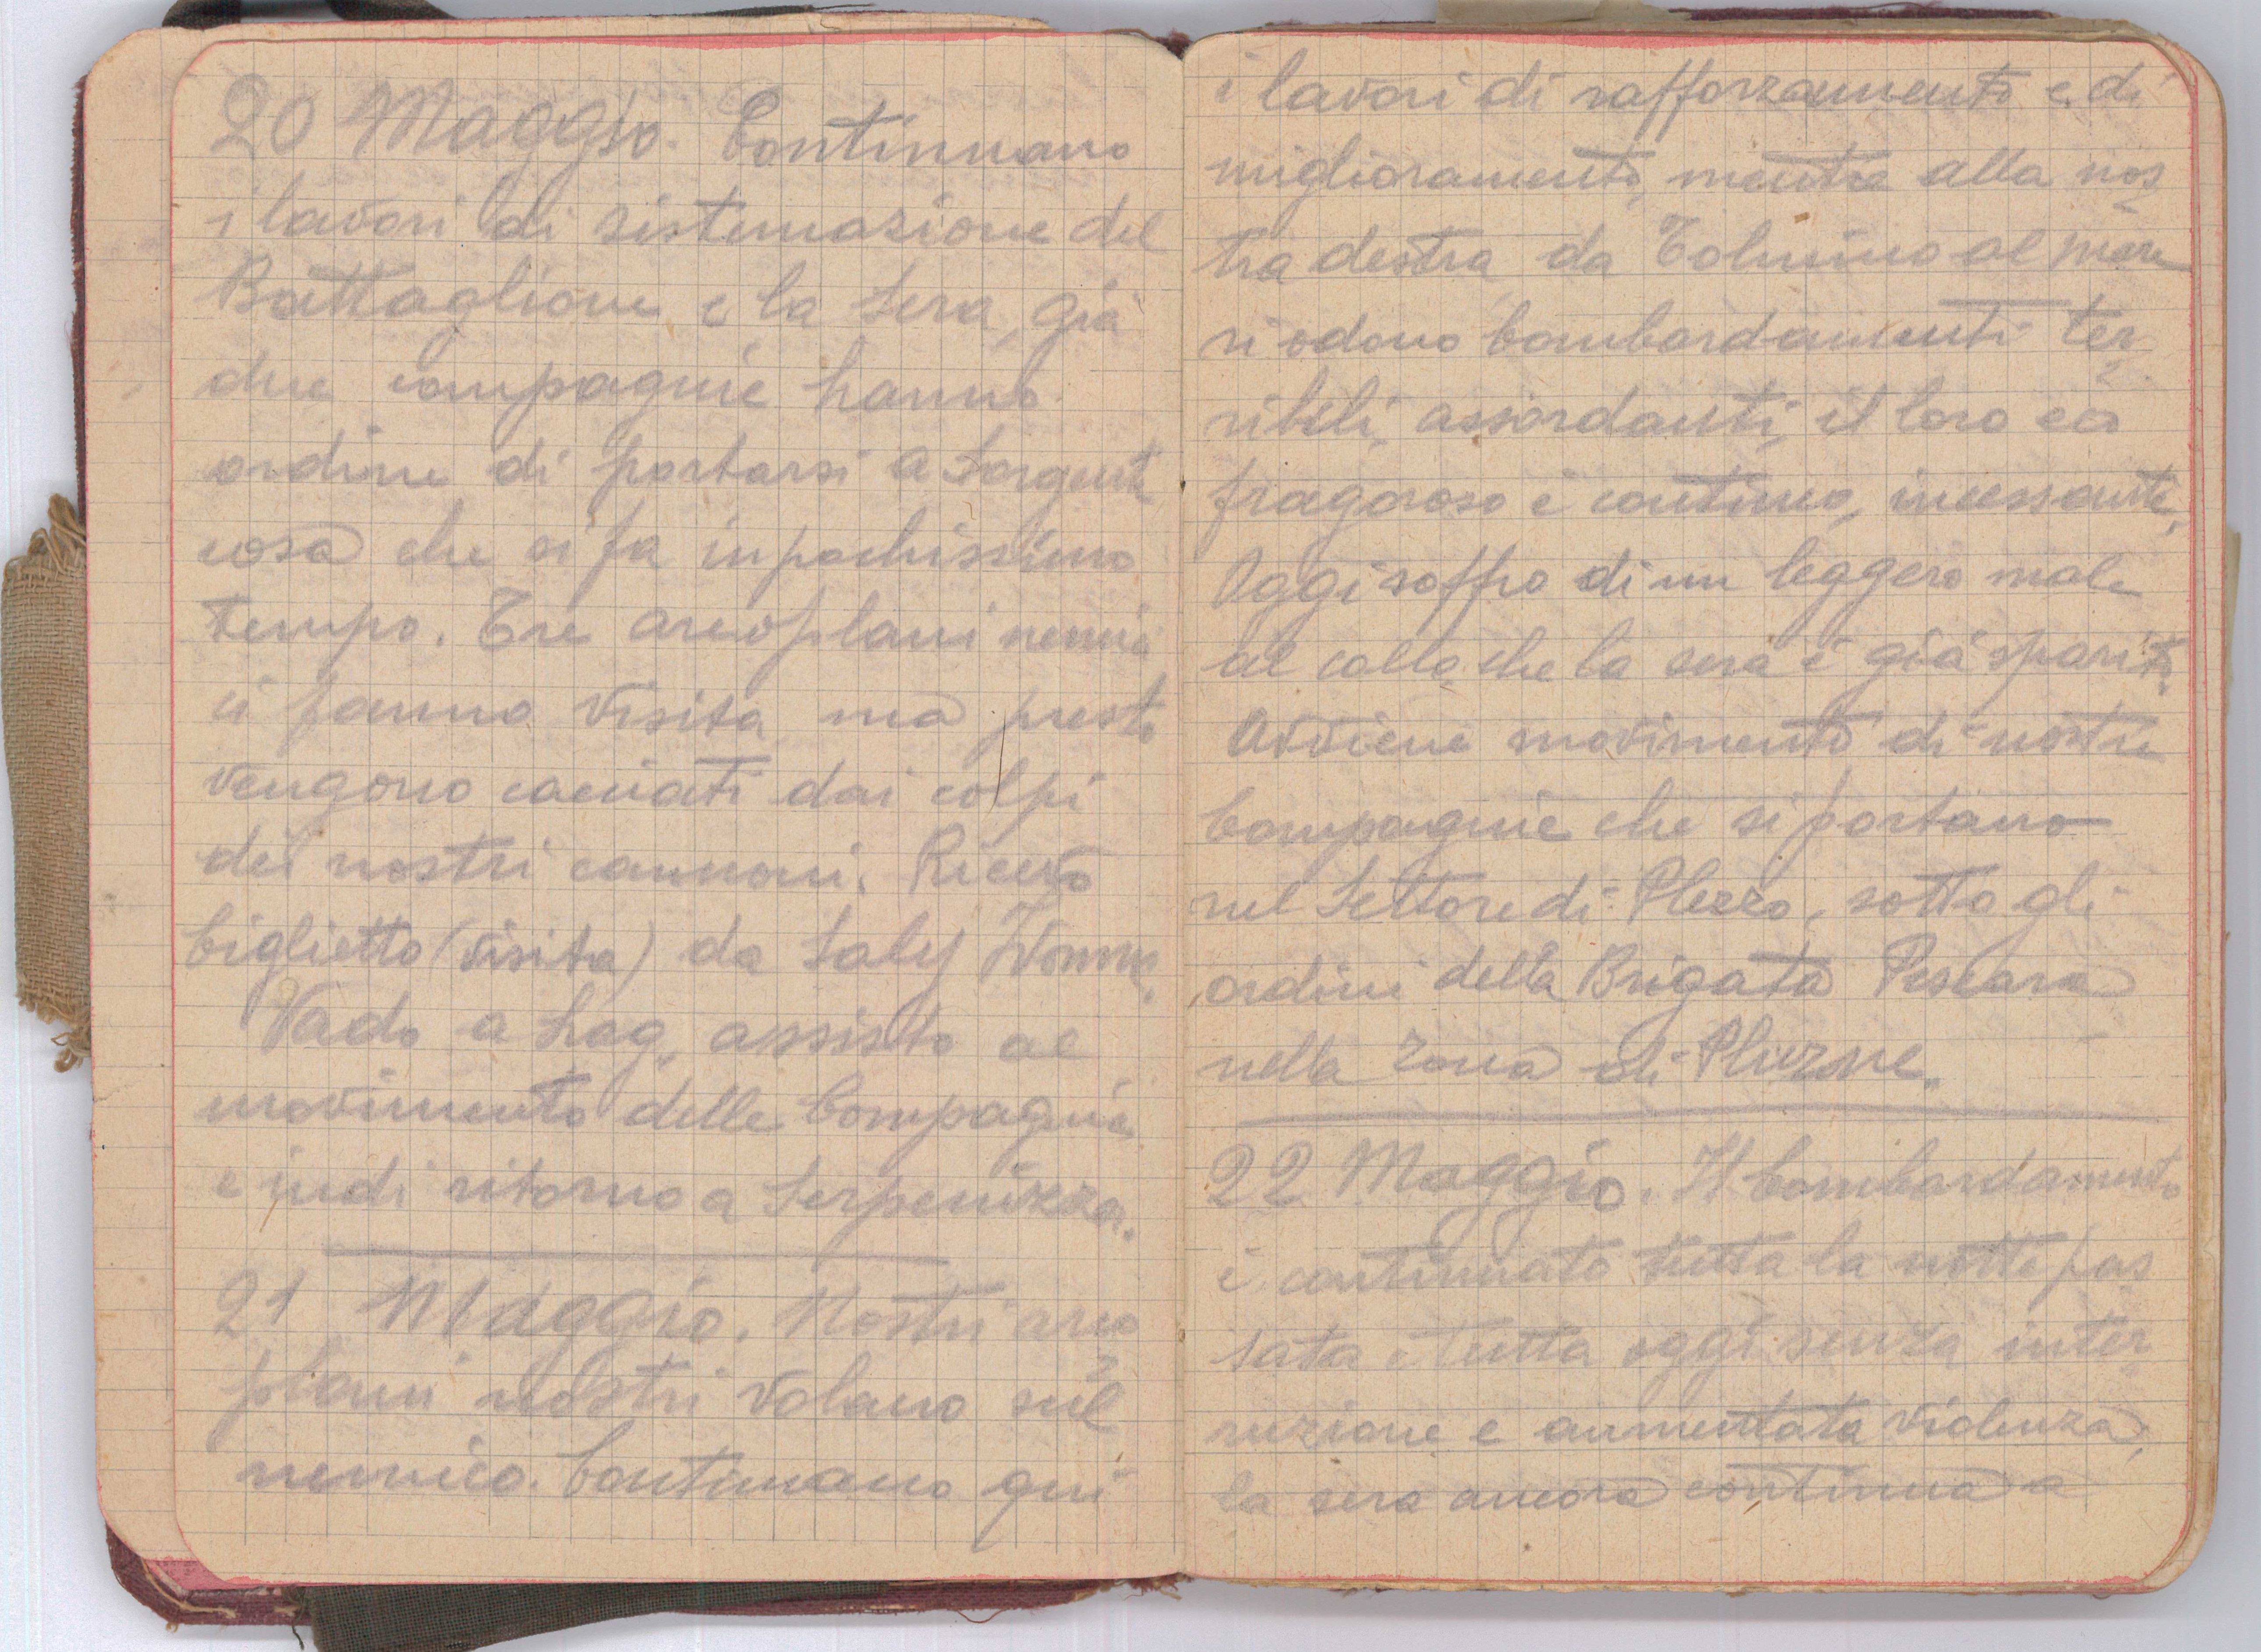 20 Maggio. Continuano
i lavori di sistemazione del
Battaglione e la sera, già
due compagnie hanno
ordine di portarsi a Sorgente
cosa che si fa in pochissimo
tempo. Tre areoplani nemici
ci fanno visita ma presto
vengono cacciati dai colpi
dei nostri cannoni. Ricevo
biglietto (visita) da Saly Ivonne.
Vado a Log, assisto al
movimento delle Compagnie
e indi ritorno a Serpenizza.
21 Maggio. Nostri areo
plani nostri volano sul
nemico. Continuano qui
i lavori di rafforzamento e di
miglioramento, mentre alla nos
tra destra, da Tolmino al mare
si odono bombardamenti ter
ribili, assordanti, il loro eco
fragoroso è continuo, incessante.
Oggi soffro di un leggero male
al collo che la sera è già sparito.
Avviene movimento di nostre
Compagnie che si portano
nel Settore di Plezzo, sotto gli
ordini della Brigata Pescara
nella zona di Pluzne.
22 Maggio. Il bombardamento
è continuato tutta la notte pas
sata e tutta oggi senza inter
ruzione e aumentata violenza,
la sera ancora continua a